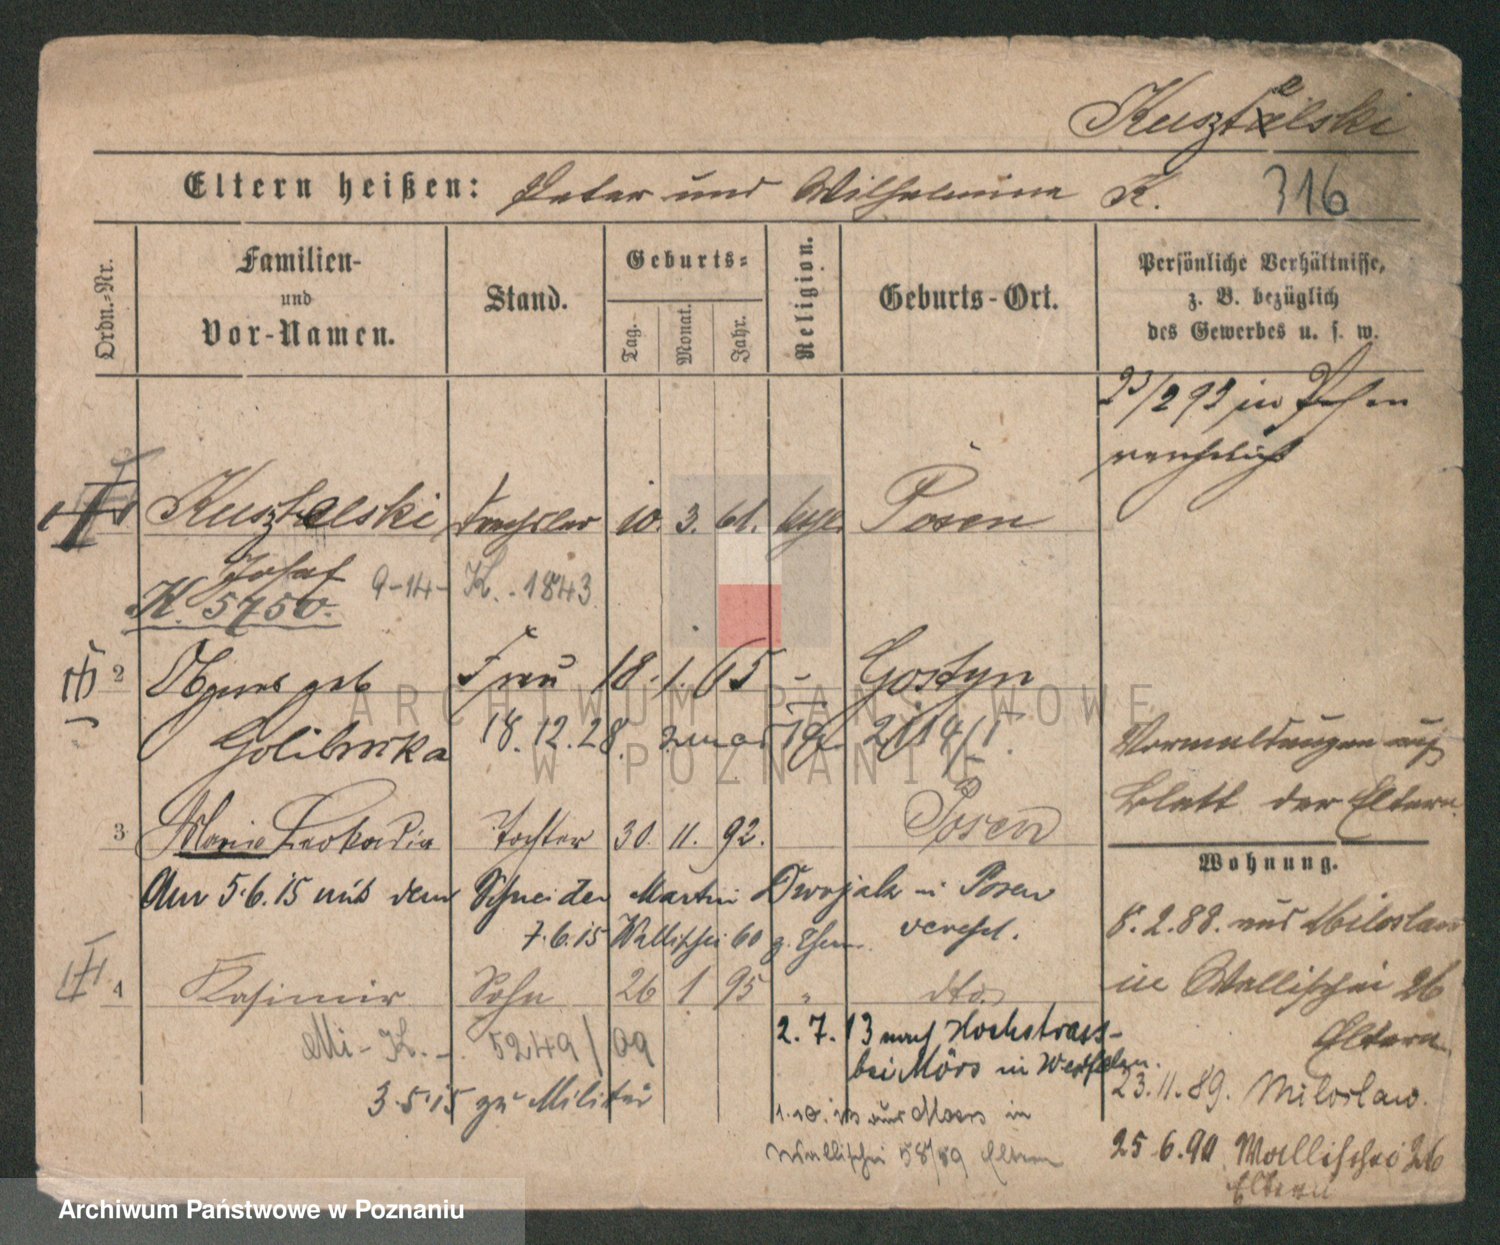 Kusztelski
Eltern heißen: Peter und Wilhelmine K. 316
Ordn.-Nr.
Familien-
und
Vor-Namen.
Stand.
Geburts-
Tag.
Monat.
Jahr.
Religion.
Geburts-Ort.
Persönliche Verhältnisse,
z. B. bezüglich
des Gewerbes u. s. w.
23/2 92 in Posen
verehelicht
Kusztelski Drechsler 10. 3. 61. kath. Posen
Josef 9-14- K. 1843
K. 5750.
2 Agnes geb Frau 18. 1. 65 - Gostyn
Golibrocka 18.12.28.
3 Maria Leokadia Tochter 30. 11. 92. Posen
Am 5.6.15 mit dem Schneider Martin Dwojak in Posen
verehel.
7.6.15 Wallischei 60 z. Ehem.
4 Kasimir Sohn 26 1 95 " dto.
Mi-K. - 5249/09
3.5.15 zu Militär
2.7.13 nach Hochstrass-
bei Mörs in Westfalen.
aus Moers in
Wallischei 58/59 Eltern
Vormeldungen auf
Blatt der Eltern.
Wohnung.
8.2.88. aus Miloslaw
in Wallischei 26
Eltern.
23.11.89. Miloslaw.
25.6.90 Wallischei 26
Eltern
ARCHIWUM PAŃSTWOWE
W POZNANIU
Archiwum Państwowe w Poznaniu